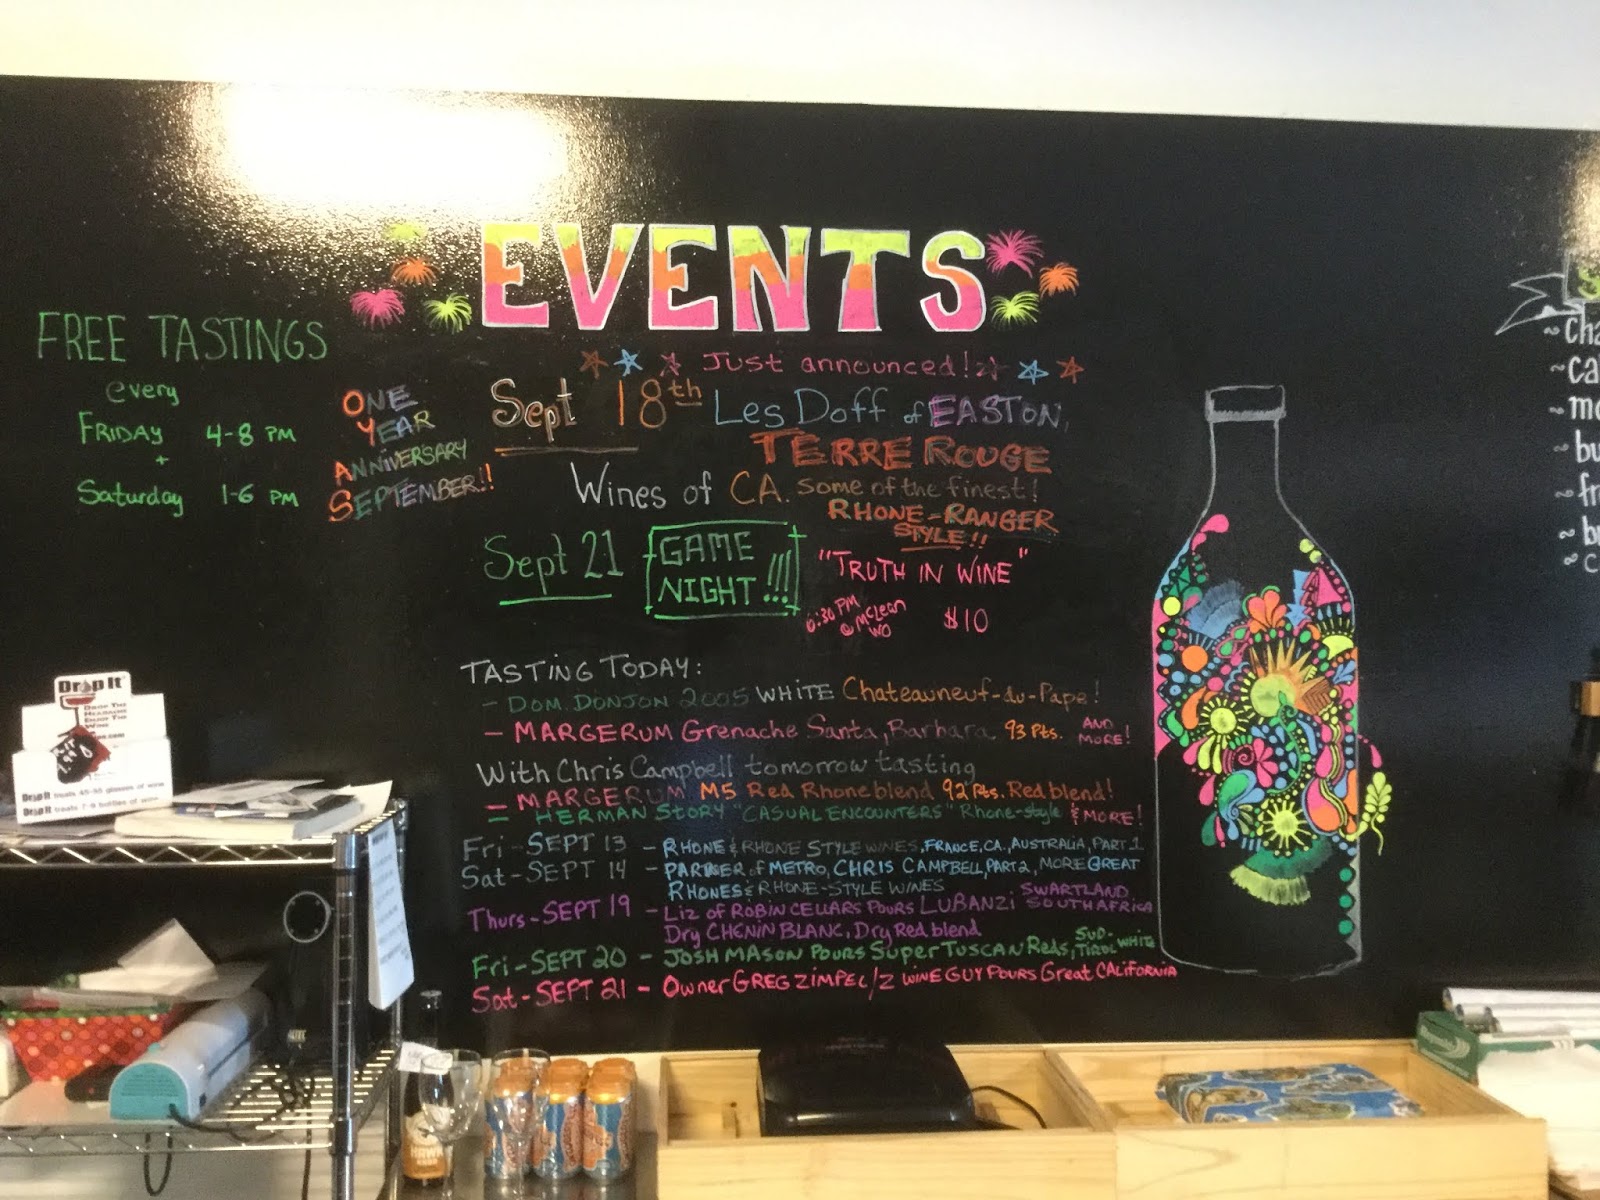 EVENTS
FREE TASTINGS
every
FRIDAY 4-8 PM
+
Saturday 1-6 PM
ONE
YEAR
ANNIVERSARY
SEPTEMBER!!
Just announced!
Sept 18th Les Doff of EASTON,
TERRE ROUGE
Wines of CA. Some of the finest!
RHONE-RANGER
STYLE!!
Sept 21 GAME
NIGHT!!!
"TRUTH IN WINE"
6:30 PM
@ McLean
WO
$10
TASTING TODAY:
- DOM. DONJON 2005 WHITE Chateauneuf-du-Pape!
- MARGERUM Grenache Santa, Barbara 93 Pts. AND
MORE!
With Chris Campbell tomorrow tasting
= MARGERUM M5 Red Rhone blend 92 Pts. Red blend!
= HERMAN STORY "CASUAL ENCOUNTERS" Rhone-style & MORE!
Fri-SEPT 13 - RHONE & RHONE STYLE WINES, FRANCE, CA., AUSTRALIA, PART 1
Sat-SEPT 14 - PARTNER of METRO, CHRIS CAMPBELL, PART 2, MORE GREAT
RHONES & RHONE-STYLE WINES
Thurs-SEPT 19 - Liz of ROBIN CELLARS POURS LUBANZI SWARTLAND
SOUTH AFRICA
Dry CHENIN BLANC, Dry Red blend
Fri-SEPT 20 - JOSH MASON POURS SUPER TUSCAN Reds, SUD-
TIROL WHITE
Sat-SEPT 21 - Owner GREG ZIMPEL/Z WINE GUY POURS Great CALIFORNIA
Drop It
DROP THE
HEADACHE
ENJOY THE
WINE
Drop It treats 45-55 glasses of wine
Drop It treats 7-9 bottles of wine
~ cha
~ ca
~ mo
~ bu
~ fr
~ b
~ c
HAWK